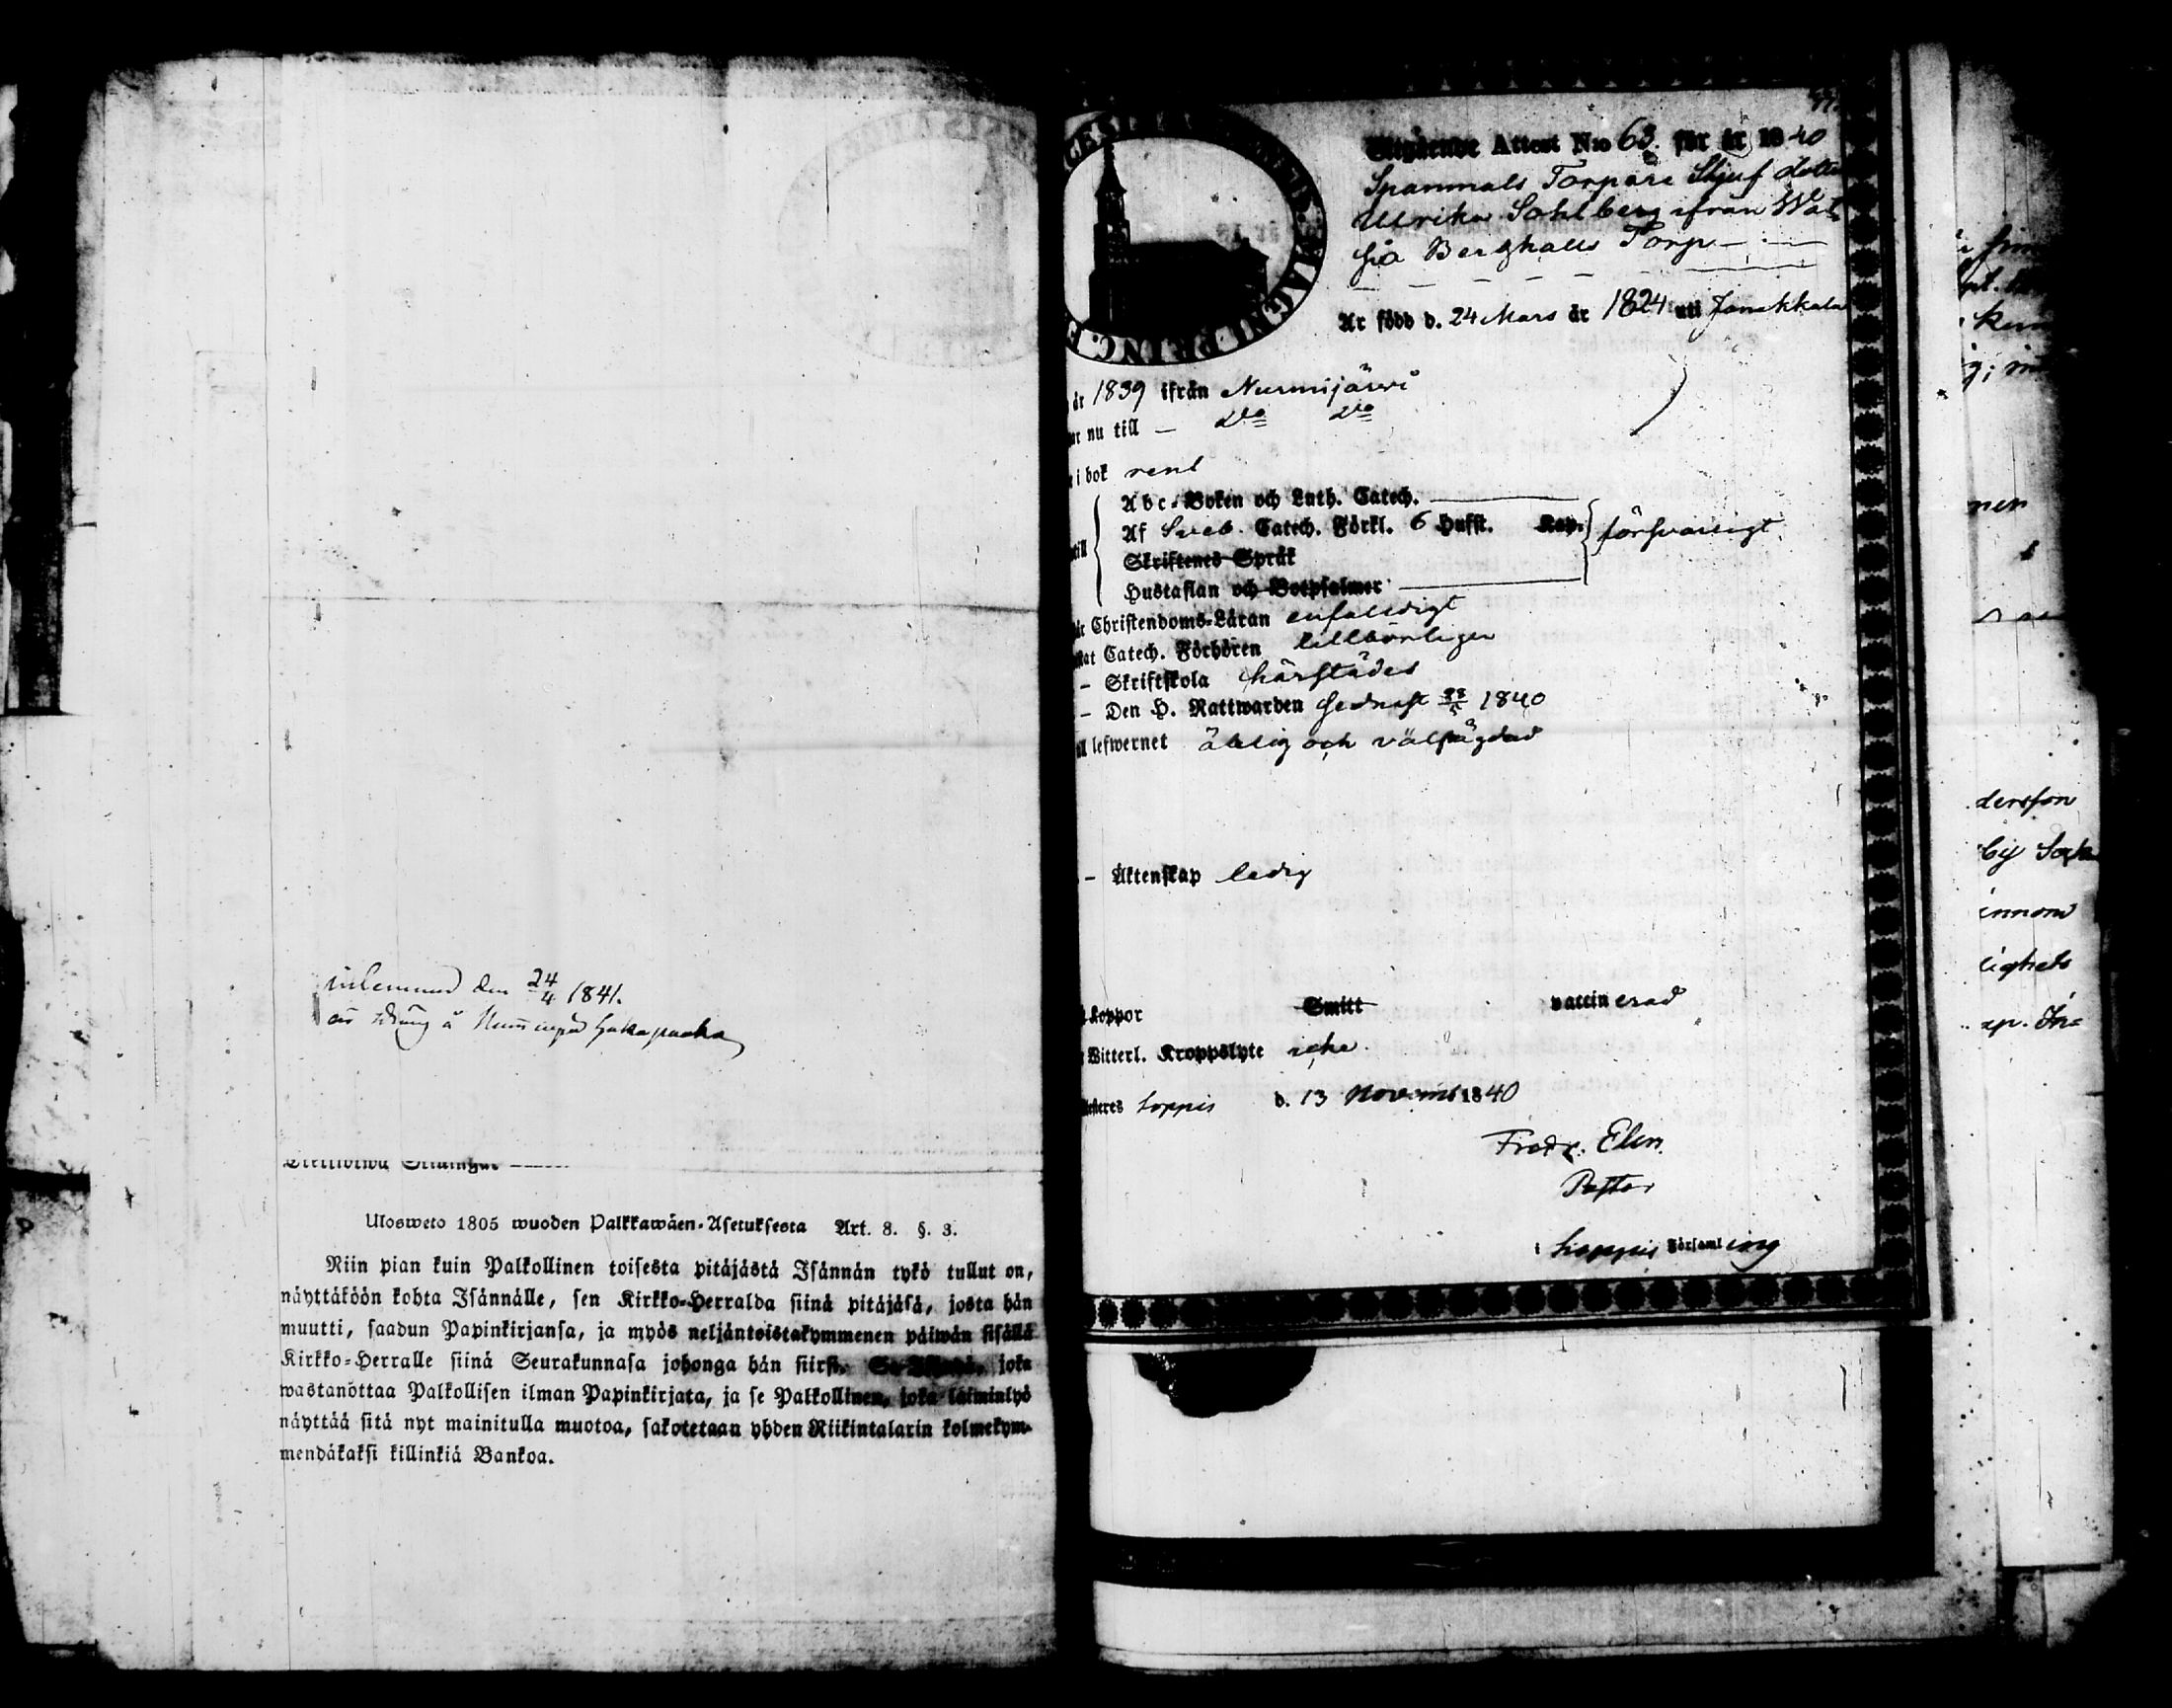 inkommen den 24/4 1841.
Ulosweto 1805 wuoden Palkkawäen-Asetuksesta Art. 8. §. 3.
Niin pian kuin Palkollinen toisesta pitäjästä Isännän tykö tullut on,
näyttäköön kohta Isännälle, sen Kirkko-Herralda siinä pitäjäsä, josta hän
muutti, saadun Papinkirjansa, ja myös neljäntoistakymmenen päiwän sisällä
Kirkko-Herralle siinä Seurakunnasa johonga hän siirsi. joka
wastanottaa Palkollisen ilman Papinkirjata, ja se Palkollinen, joka laiminlyö
näyttää sitä nyt mainitulla muotoa, sakotetaan yhden Riikintalarin kolmekym-
mendäkaksi killinkiä Bankoa.
Utgående Attest N:o 63. för år 1840
Torpare dotter
Ulrika Sahlberg ifrån
Berghälls Torp
Är född d. 24 Mars år 1824 uti Janakkala
år 1839 ifrån Nurmijärvi
nu till — D:o D:o
i bok rent
Abc-Boken och Luth. Catech.
Af Sveb. Catech. Förkl. 6 Hufst. Kap. försvarligt
Skriftenes Språk
Hustaflan och Botpsalmer
Christendoms-Läran enfaldigt
Catech. Förhören tillbörligen
– Skriftskola härstädes
– Den H. Nattwarden sednast 1840
lefwernet ärlig och välfrägdad
– Äktenskap ledig
koppor Smitt vaccinerad
Witterl. Kroppslyte icke
Loppis d. 13 Novemb 1840
Fredr. Elen
Pastor
i Loppis Församling
nen
dersson
by
innom
lighets